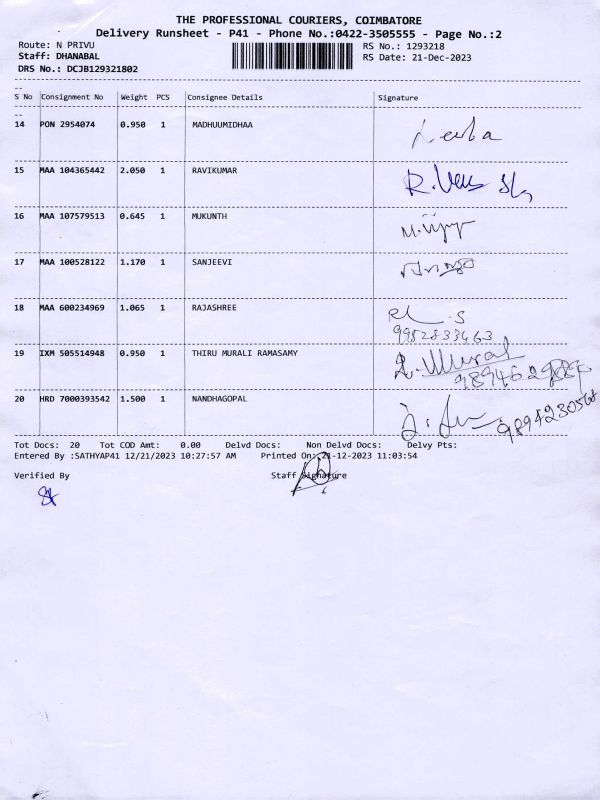 THE PROFESSIONAL COURIERS, COIMBATORE
Delivery Runsheet - P41 - Phone No.:0422-3505555 - Page No.:2
Route: N PRIVU RS No.: 1293218
Staff: DHANABAL RS Date: 21-Dec-2023
DRS No.: DCJB129321802
S No Consignment No Weight PCS Consignee Details Signature
14 PON 2954074 0.950 1 MADHUUMIDHAA
15 MAA 104365442 2.050 1 RAVIKUMAR
16 MAA 107579513 0.645 1 MUKUNTH
17 MAA 100528122 1.170 1 SANJEEVI
18 MAA 600234969 1.065 1 RAJASHREE
9952833463
19 IXM 505514948 0.950 1 THIRU MURALI RAMASAMY
20 HRD 7000393542 1.500 1 NANDHAGOPAL
Tot Docs: 20 Tot COD Amt: 0.00 Delvd Docs: Non Delvd Docs: Delvy Pts:
Entered By :SATHYAP41 12/21/2023 10:27:57 AM Printed On:21-12-2023 11:03:54
Verified By Staff Signature